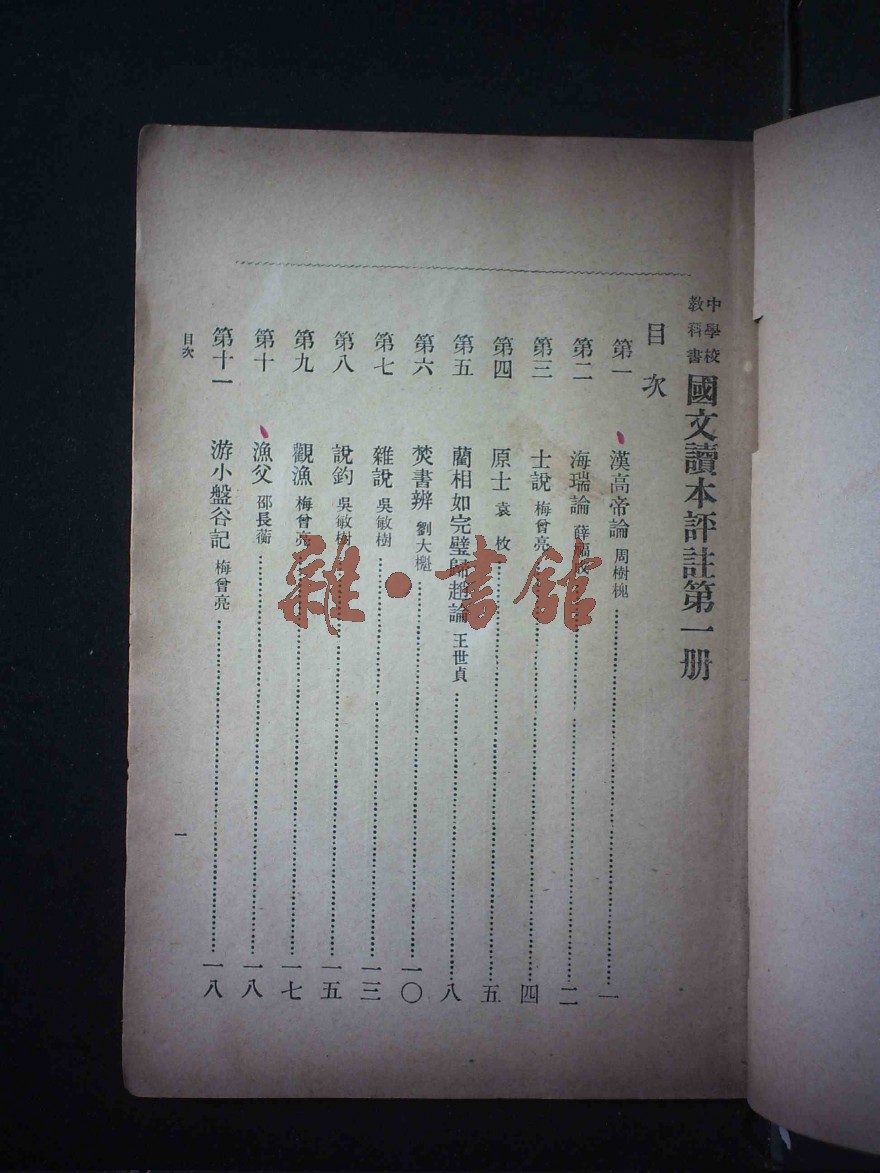 中學校
教科書
國文讀本評註第一册
目次
第一 漢高帝論 周樹槐 一
第二 海瑞論 薛福成 二
第三 士說 梅曾亮 四
第四 原士 袁枚 五
第五 藺相如完璧歸趙論 王世貞 八
第六 焚書辨 劉大櫆 一〇
第七 雜說 吳敏樹 一三
第八 說釣 吳敏樹 一五
第九 觀漁 梅曾亮 一七
第十 漁父 邵長蘅 一八
第十一 游小盤谷記 梅曾亮 一八
目次 一
雜·書館